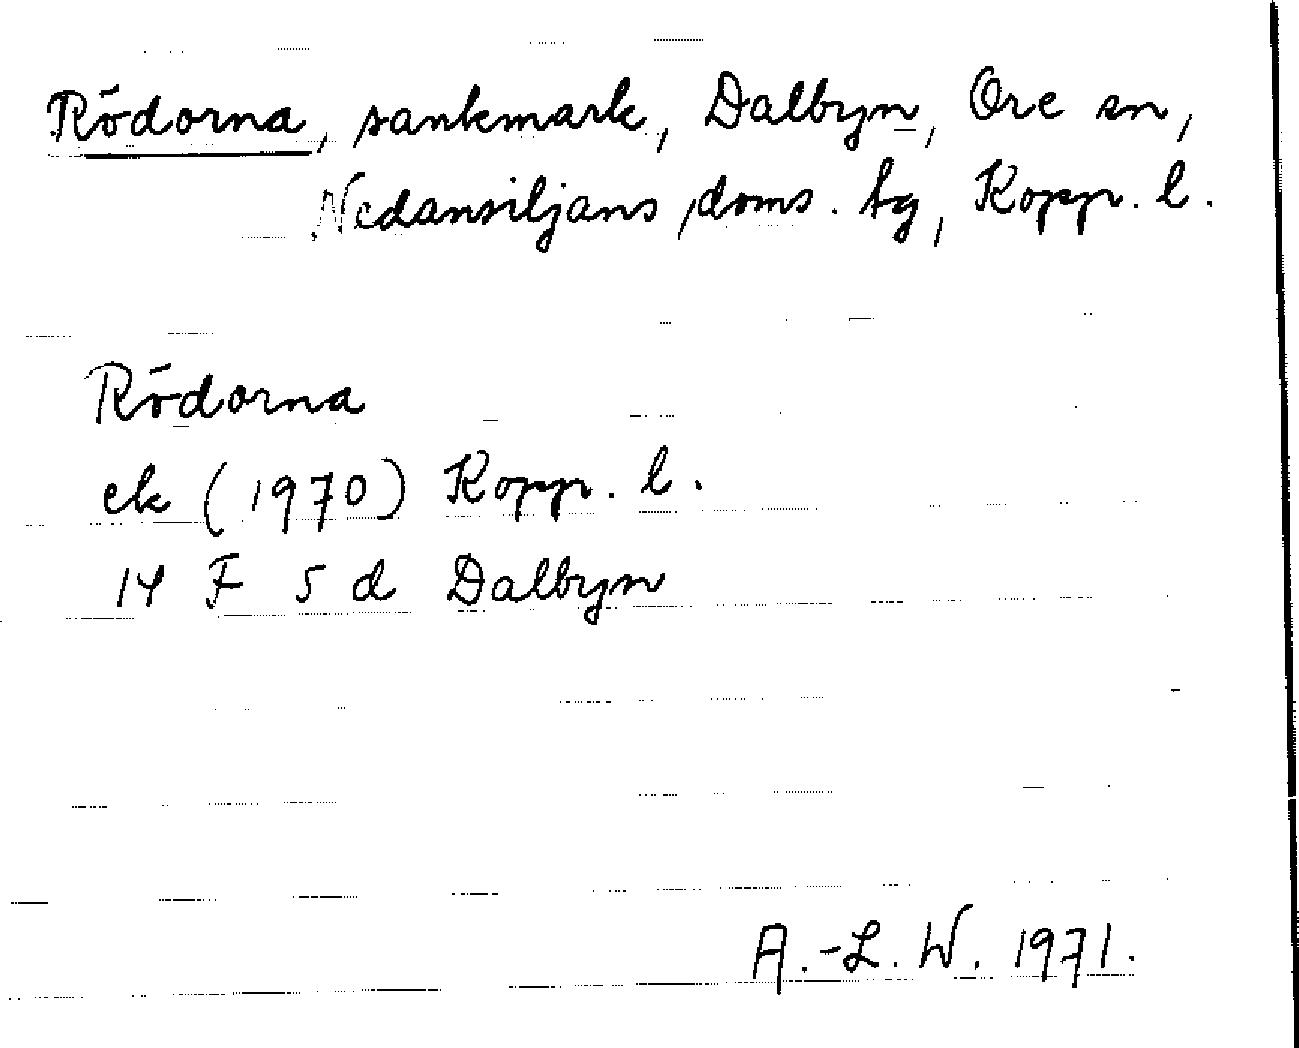 Rödorna, sankmark, Dalbyn, Ore sn,
Nedansiljans doms. tg, Kopp. l.
Rödorna
ek (1970) Kopp. l.
14 F 5 d Dalbyn
A.-L. W. 1971.